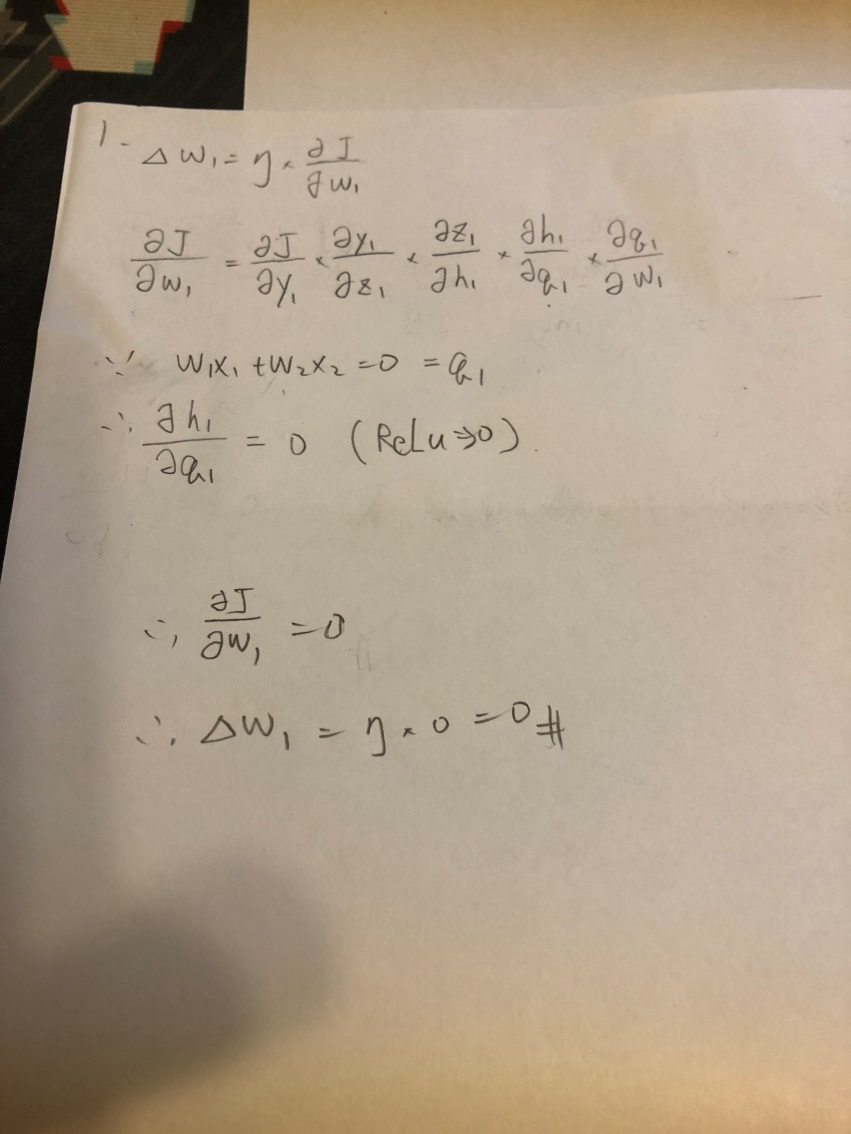 1. Δw₁ = η × ∂J/∂w₁
∂J/∂w₁ = ∂J/∂y₁ × ∂y₁/∂z₁ × ∂z₁/∂h₁ × ∂h₁/∂q₁ × ∂q₁/∂w₁
∵ w₁x₁ + w₂x₂ = 0 = q₁
∴ ∂h₁/∂q₁ = 0 (ReLu → 0).
∴ ∂J/∂w₁ = 0
∴ Δw₁ = η × 0 = 0 #